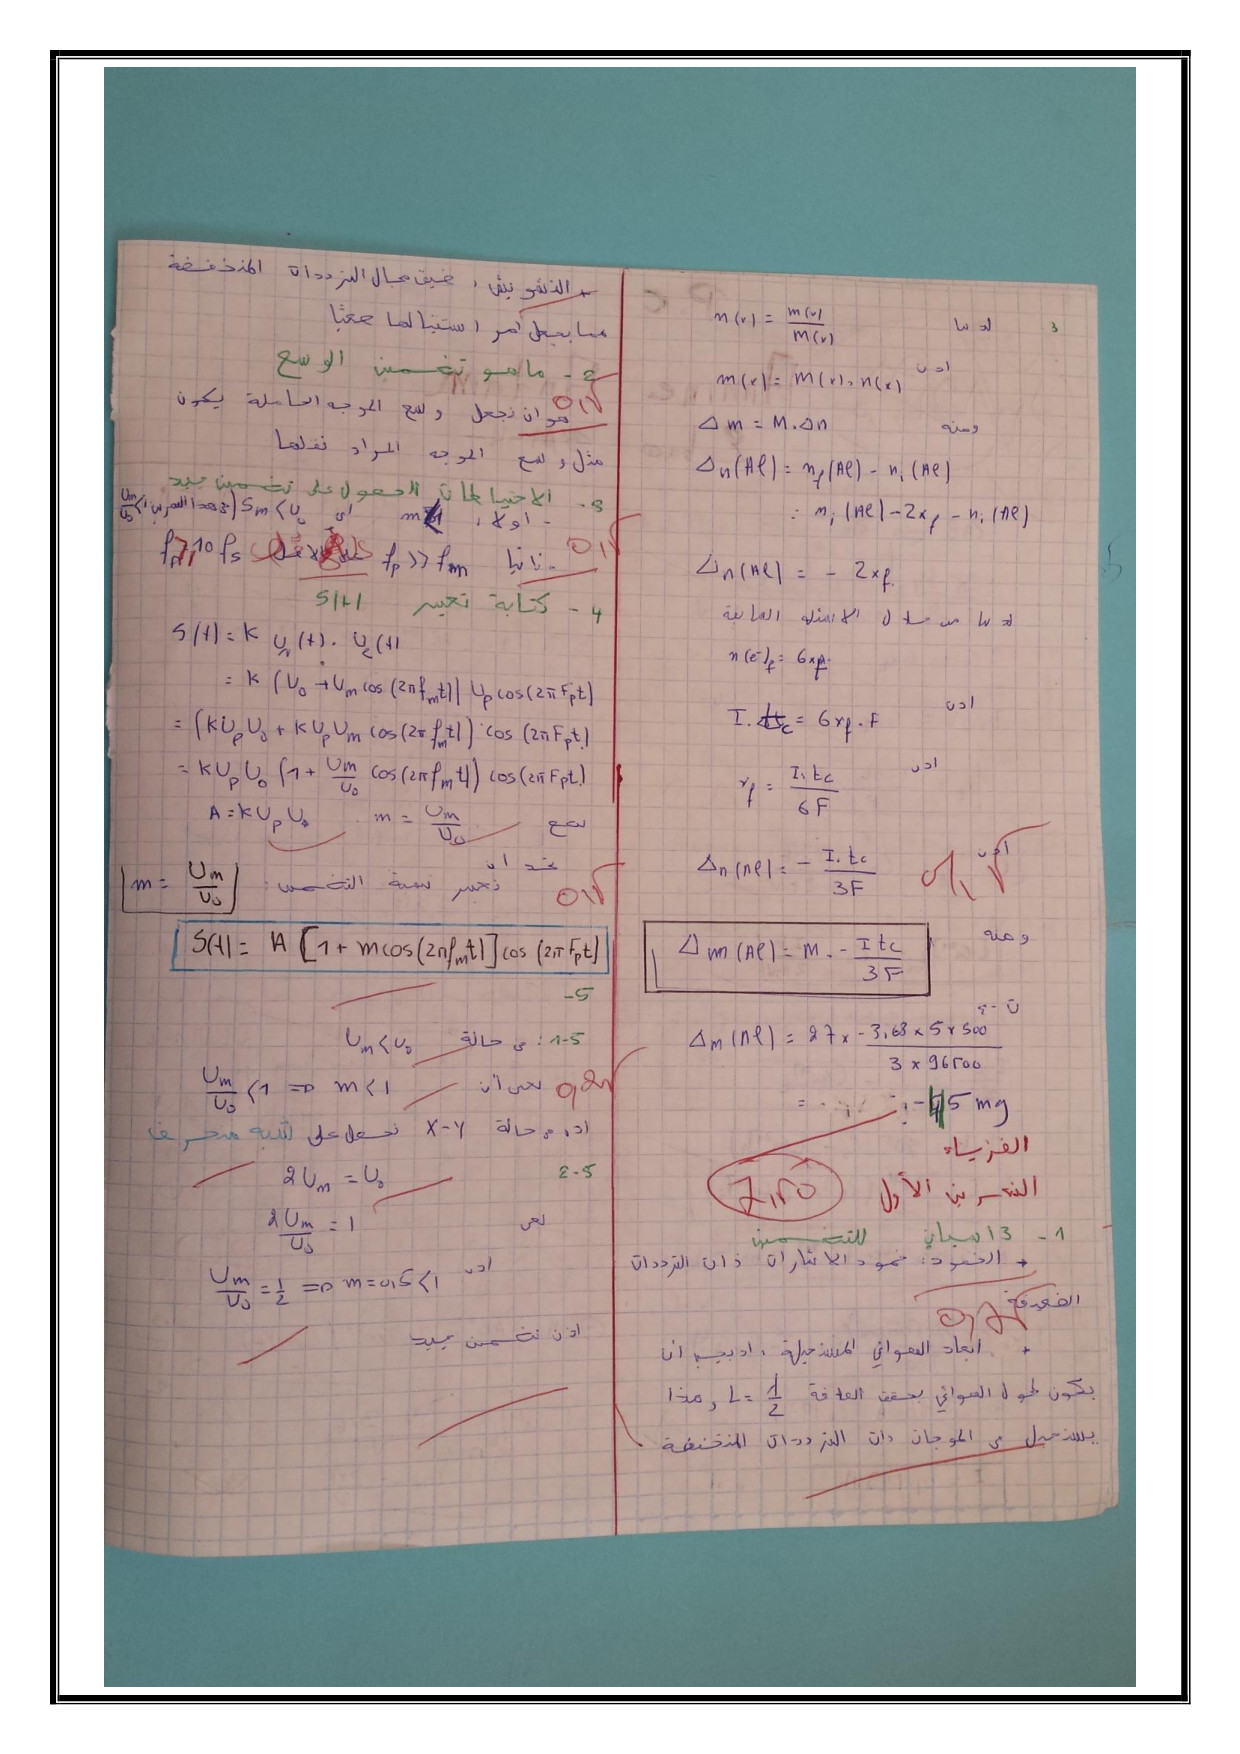 3 لدينا n(x) = m(x)/M(x)
اذن m(x) = M(x).n(x)
ومنه Δm = M.Δn
Δn(Al) = nf(Al) - ni(Al)
: ni(Al) - 2xf - ni(Al)
Δn(Al) = - 2xf
لدينا من خلال الاسئلة السابقة
n(e-)f = 6xf
اذن I.tc = 6xf.F
اذن xf = I.tc/6F
اذن Δn(Al) = - I.tc/3F
ومنه Δm(Al) = M. - I tc/3F
ت-ع
Δm(Al) = 27 x - 3,63 x 5 x 500/3 x 96500
= -45 mg
الفزياء
التمرين الأول
7,50
1 - 3 اسباب للتضمين
+ الخمود: خمود الاشارات ذات الترددات
الضعيفة
0,75
+ ابعاد الهوائي المستحيلة، اذ يجب ان
يكون طول الهوائي يحقق العلاقة L = λ/2 وهذا
يستحيل في الموجات ذات الترددات المنخفضة
+ التشويش، ضيق مجال الترددات المنخفضة
مما يجعل امر استقبالها صعبًا
2 - ما هو تضمين الوسع
هو ان نجعل وسع الموجه الحاملة يكون
مثل وسع الموجه المراد نقلها
3 - الاحتياطات للحصول على تضمين جيد
- اولا، m<1 اي Sm < U0 (في هذا التمرين Um/U0 < 1)
- ثانيا fp >> fm على الاقل fp ≥ 10 fs
4 - كتابة تعبير S(t)
S(t) = K U1(t) . U2(t)
= K (U0 + Um cos(2πfmt)) Up cos(2πFpt)
= (KUpU0 + KUpUm cos(2πfmt)) cos(2πFpt)
= KUpU0 (1 + Um/U0 cos(2πfmt)) cos(2πFpt)
نضع m = Um/U0 A = KUpU0
نجد ان
تعبير نسبة التضمين: m = Um/U0
S(t) = A [1 + m cos(2πfmt)] cos(2πFpt)
5-
1-5: في حالة Um < U0
يعني ان Um/U0 < 1 => m < 1
0,25
اذن في حالة X-Y نحصل على شبه منحرف
2-5 2Um = U0
يعني 2Um/U0 = 1
اذن Um/U0 = 1/2 => m = 0,5 < 1
اذن تضمين جيد